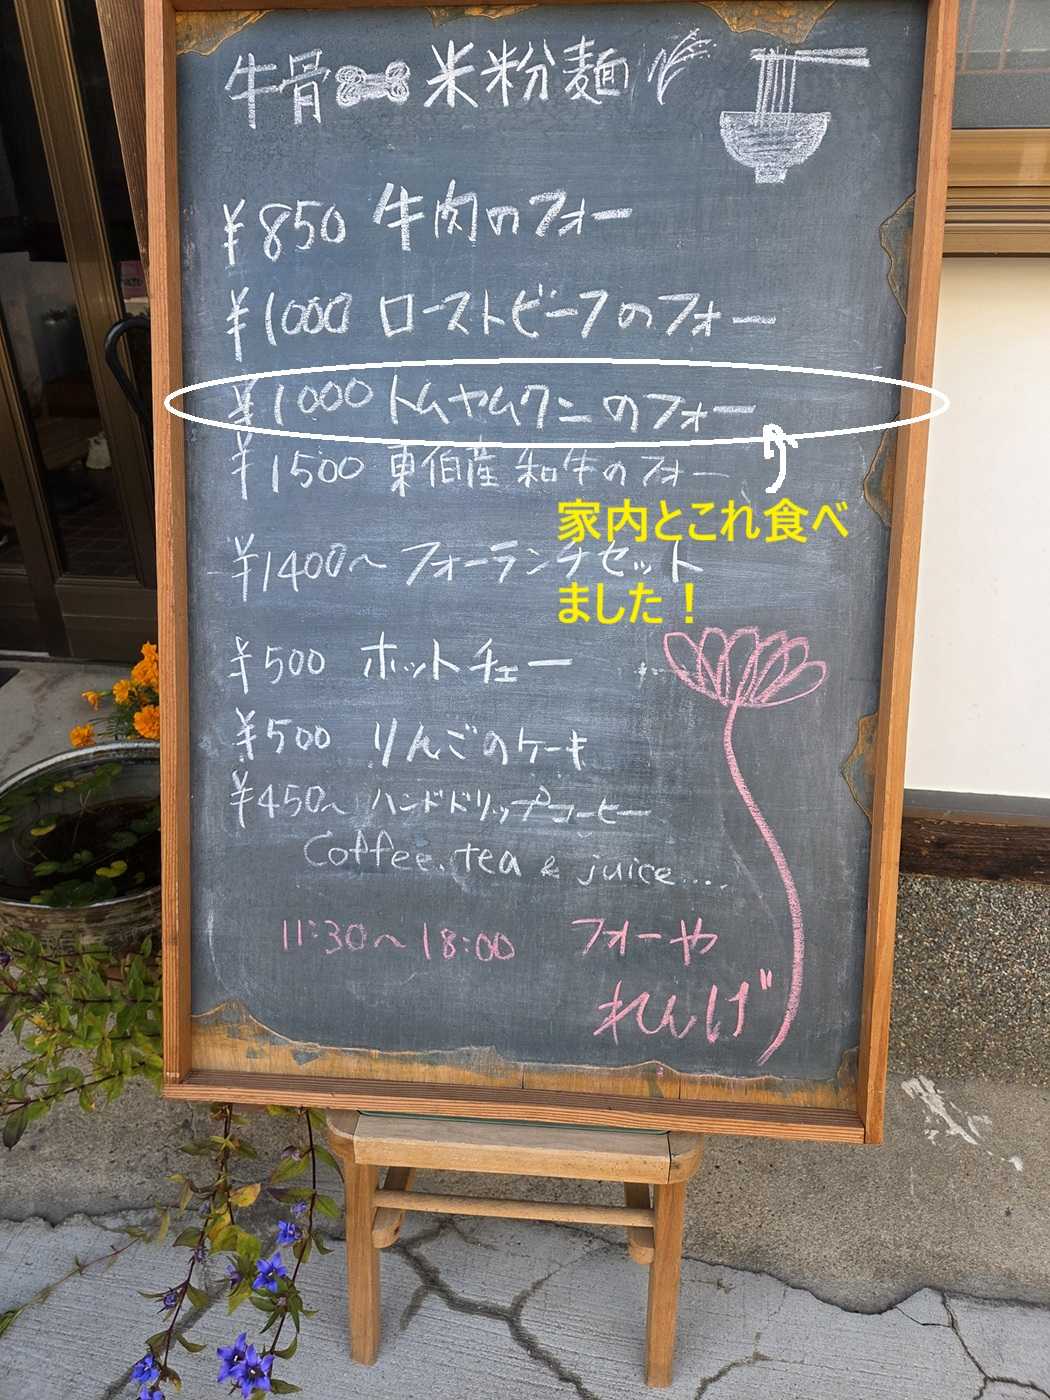 牛骨 米粉麺
¥850 牛肉のフォー
¥1000 ローストビーフのフォー
¥1000 トムヤムクンのフォー
¥1500 東伯産和牛のフォー
家内とこれ食べ
¥1400〜 フォーランチセット
ました！
¥500 ホットチェー
¥500 りんごのケーキ
¥450〜 ハンドドリップコーヒー
Coffee, tea & juice....
11:30〜18:00 フォーや
れんげ